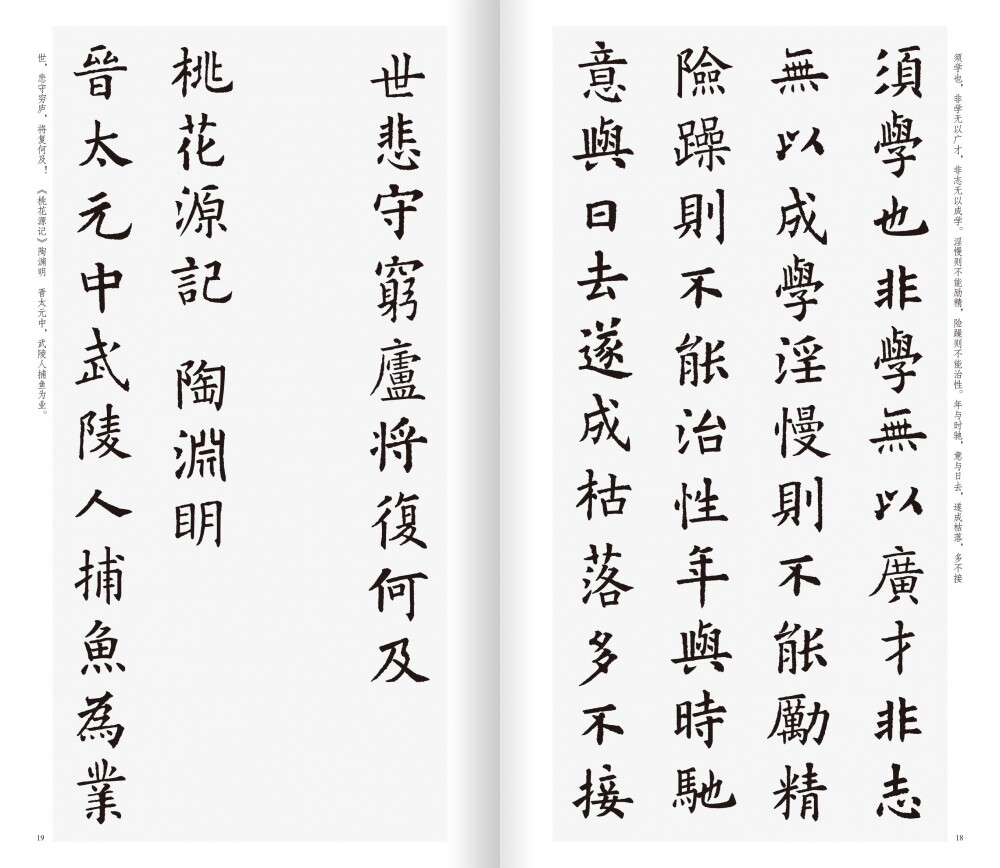 須學也非學無以廣才非志
無以成學淫慢則不能勵精
險躁則不能治性年與時馳
意與日去遂成枯落多不接
须学也，非学无以广才，非志无以成学。淫慢则不能励精，险躁则不能治性。年与时驰，意与日去，遂成枯落，多不接
18
世悲守窮廬將復何及
桃花源記 陶淵明
晉太元中武陵人捕魚為業
世，悲守穷庐，将复何及！ 《桃花源记》陶渊明 晋太元中，武陵人捕鱼为业。
19